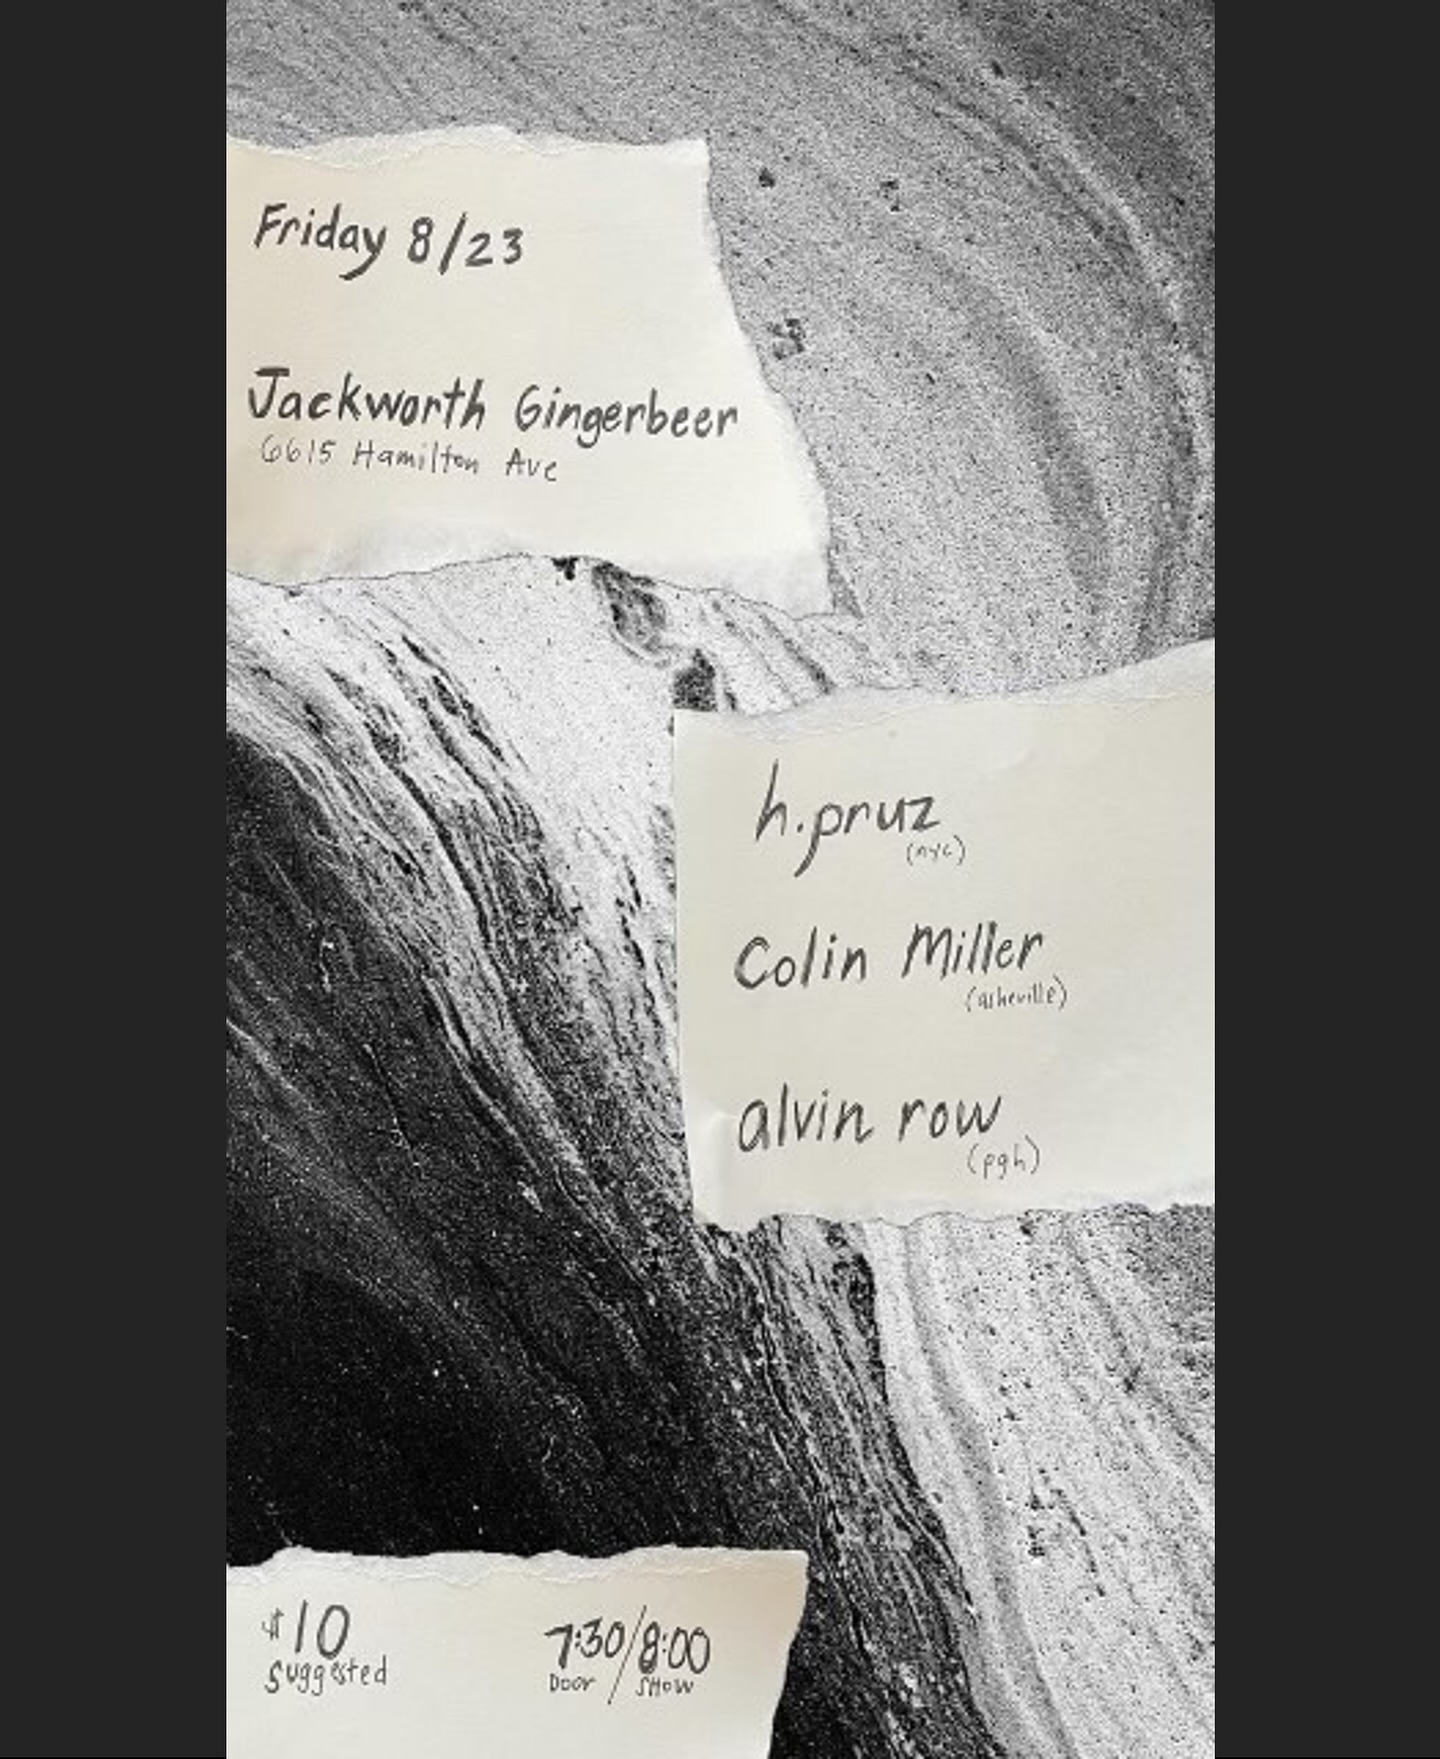 Friday 8/23
Jackworth Gingerbeer
6615 Hamilton Ave
h.pruz
(nyc)
Colin Miller
(asheville)
alvin row
(pgh)
$10
suggested
7:30/8:00
Door / SHow